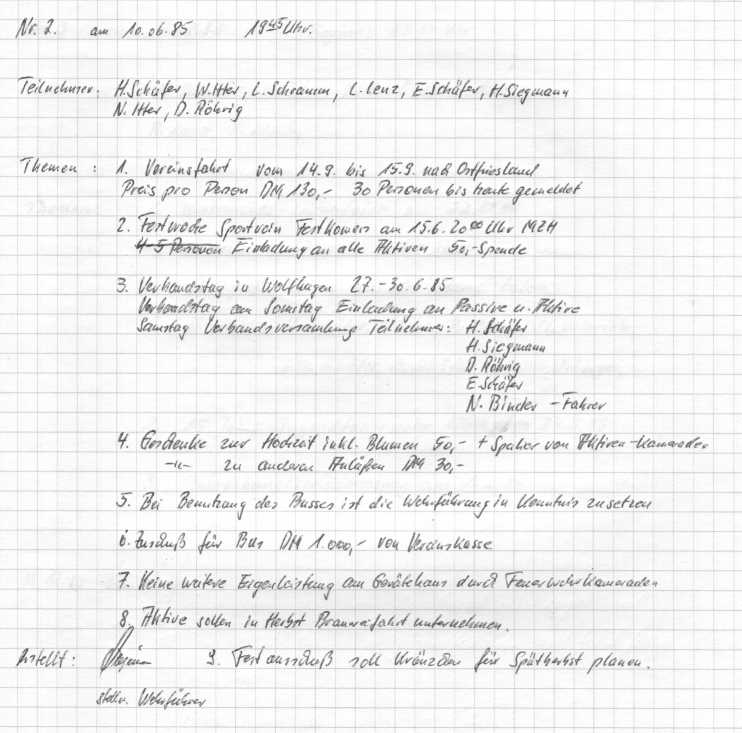 Nr. 2. am 10.06.85 19⁴⁵ Uhr.
Teilnehmer: H. Schäfer, W. Itter, L. Schramm, L. Lenz, E. Schäfer, H. Siegmann
N. Itter, D. Röhrig
Themen : 1. Vereinsfahrt vom 14.9. bis 15.9. nach Ostfriesland
Preis pro Person DM 130,- 30 Personen bis heute gemeldet
2. Festwoche Sportverein Festkomers am 15.6. 20⁰⁰ Uhr MZH
4-5 Personen Einladung an alle Aktiven 50,- Spende
3. Verbandstag in Wolfhagen 27.-30.6.85
Verbandstag am Sonntag Einladung an Passive u. Aktive
Samstag Verbandsversammlung Teilnehmer: H. Schäfer
H. Siegmann
D. Röhrig
E. Schäfer
N. Binder - Fahrer
4. Geschenke zur Hochzeit inkl. Blumen 50,- + von Aktiven-Kameraden
-"- zu anderen Anläßen DM 30,-
5. Bei Benutzung des Busses ist die Wehrführung in Kenntnis zu setzen
6. Zuschuß für Bus DM 1.000,- von Vereinskasse
7. Keine weitere Eigenleistung am Gerätehaus durch Feuerwehrkameraden
8. Aktive sollen im Herbst Brauereifahrt unternehmen.
Erstellt : 9. Festausschuß soll Kränzchen für Spätherbst planen.
stellv. Wehrführer